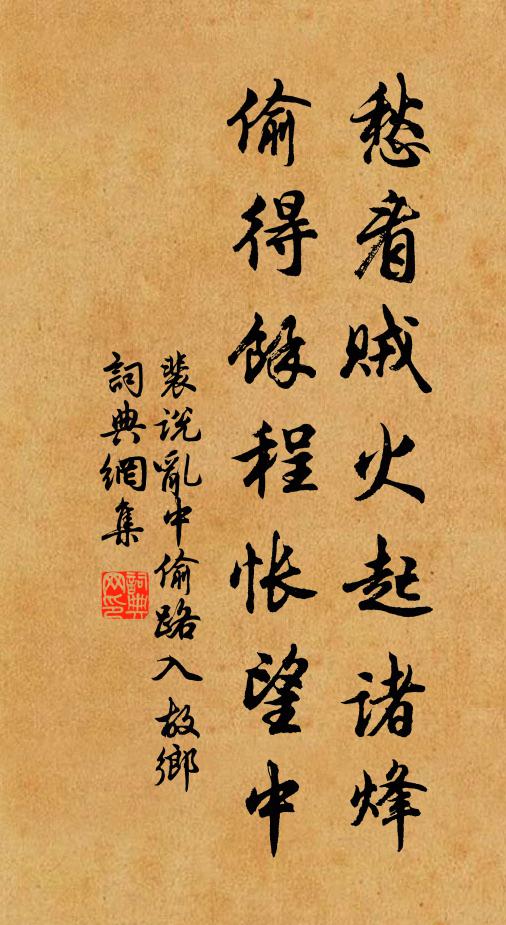 愁看贼火起诸烽
偷得馀程怅望中
裴说乱中偷路入故乡
詞典網集
詞典网印